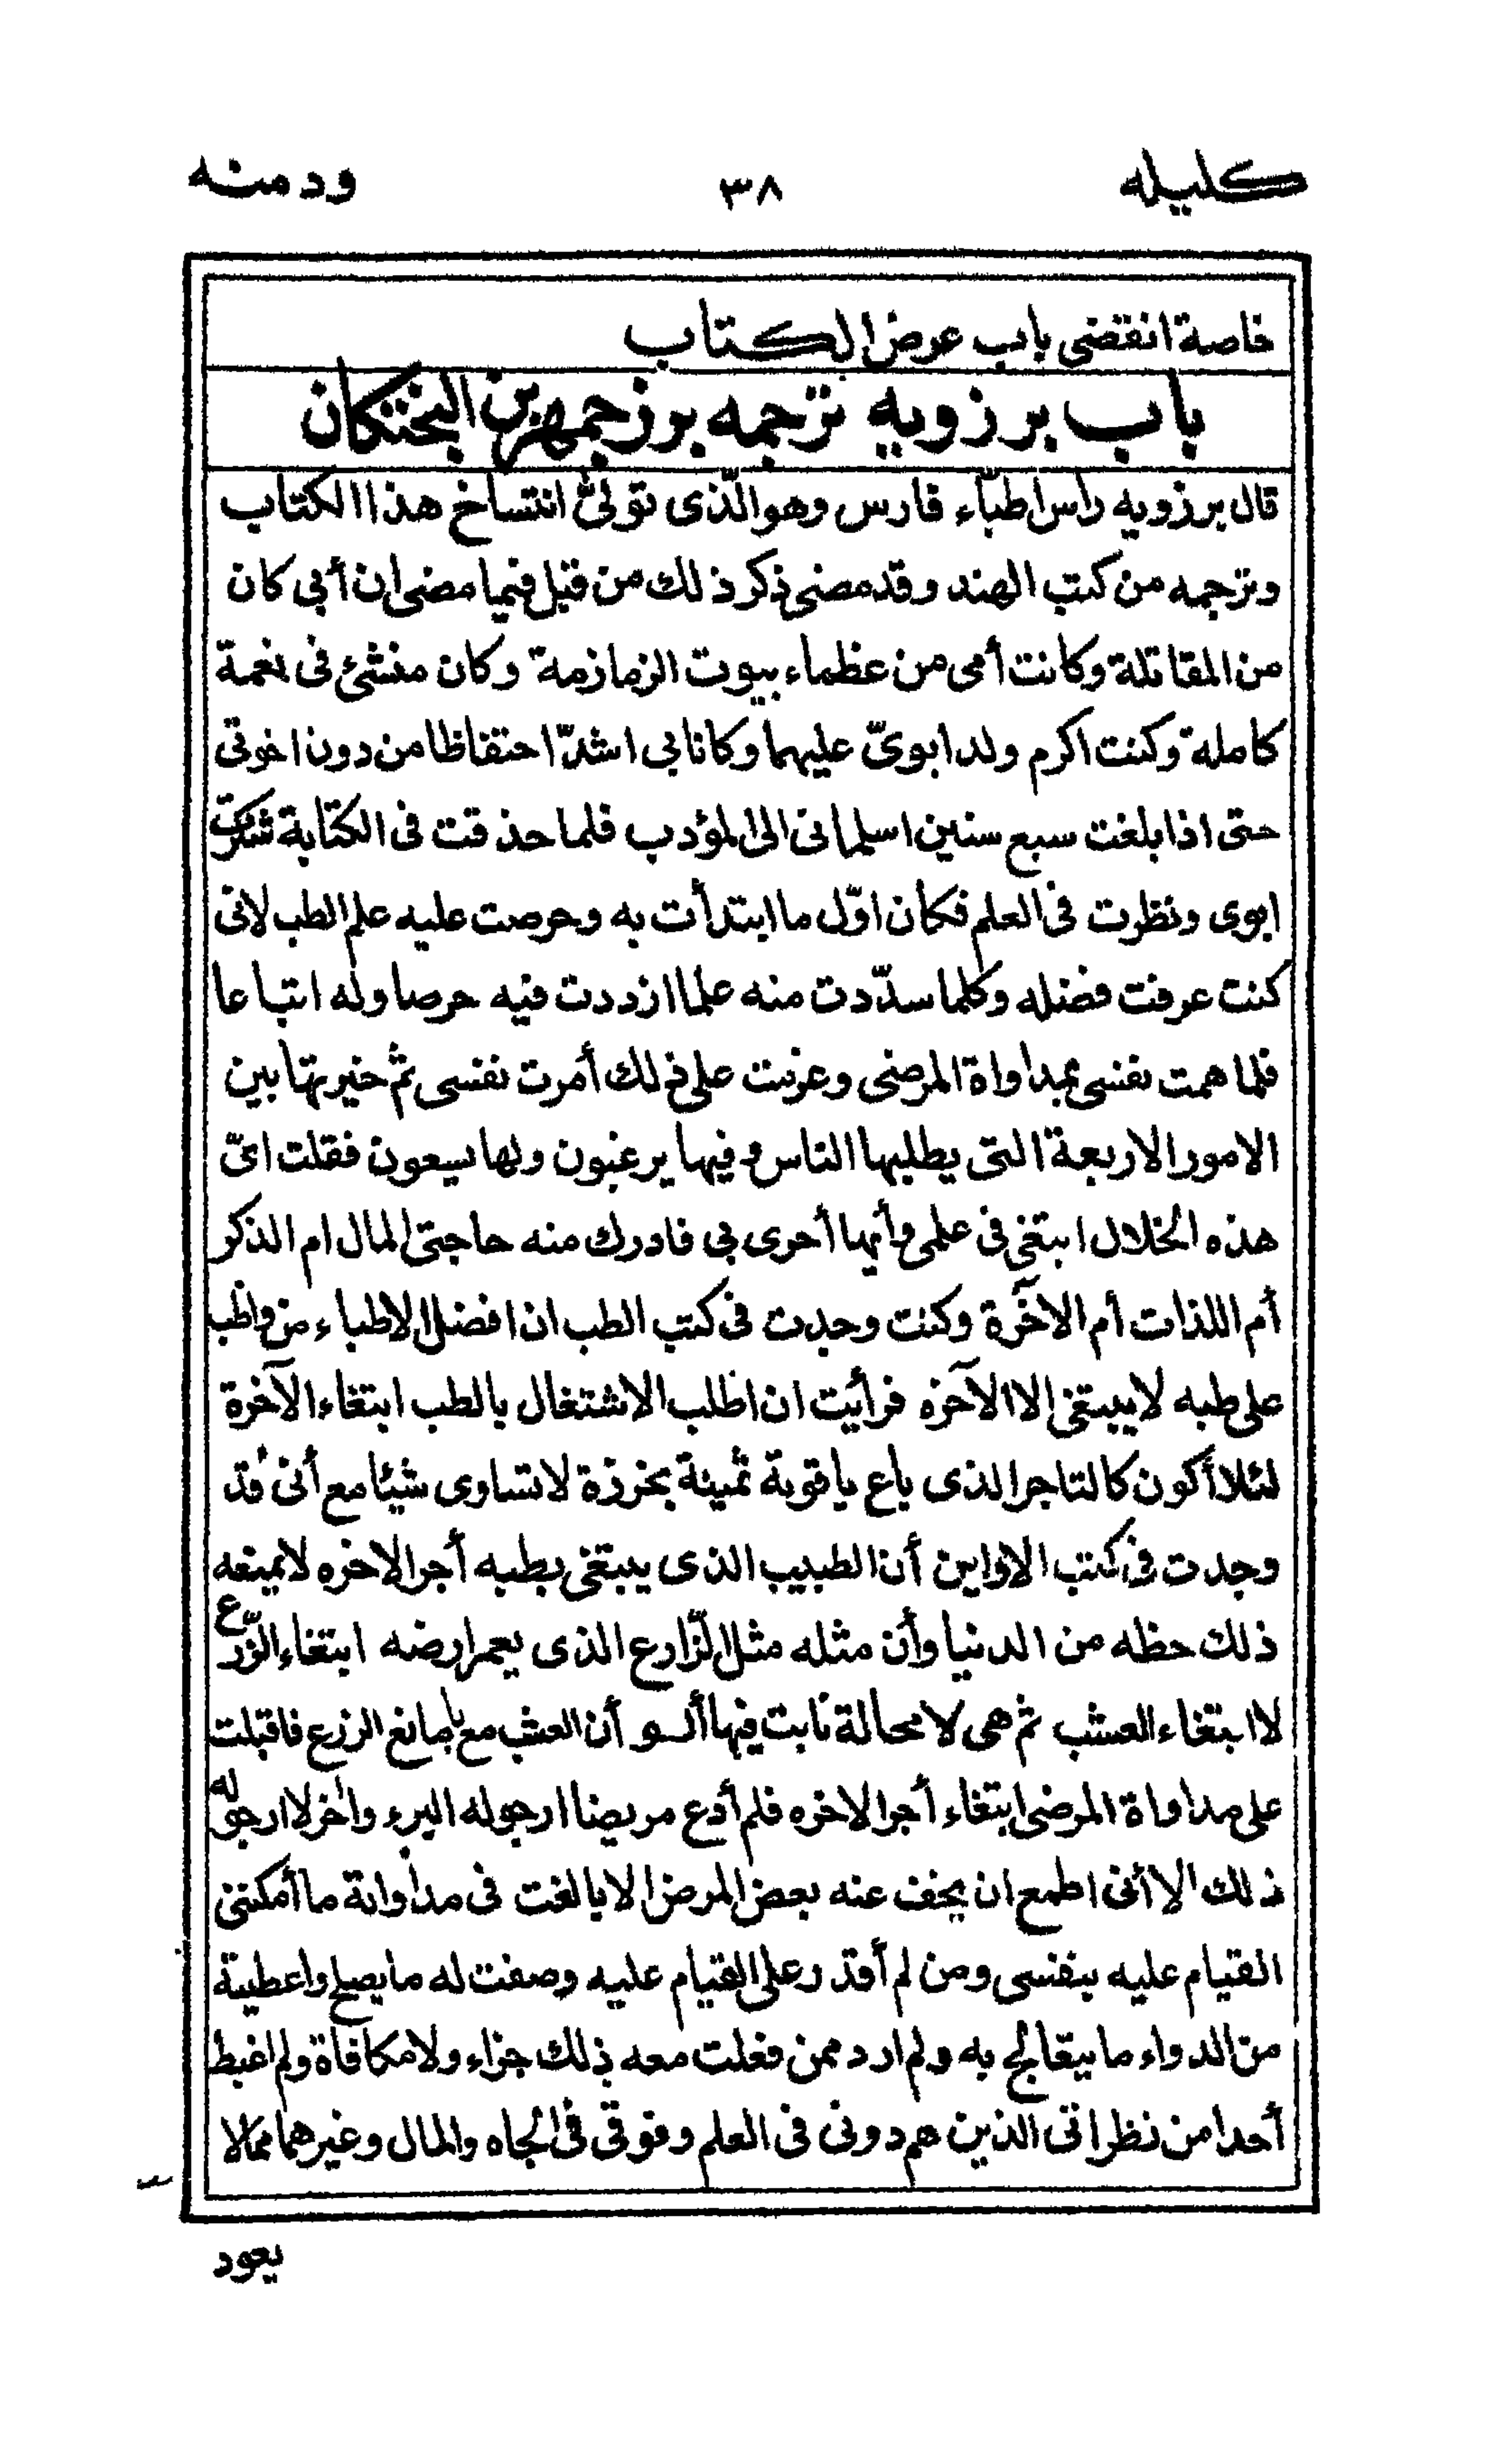 كليله ٣٨ ودمنه
خاصة انقضى باب عرض الكتاب
باب برزويه ترجمه برزجمهر بن البختكان
قال برزويه رأس اطبّاء فارس وهو الّذى تولىّ انتساخ هذا الكتاب
وترجمه من كتب الهند وقد مضى ذكر ذلك من قبل فيما مضى ان أبي كان
من المقاتلة وكانت أمى من عظماء بيوت الزمازمة وكان منشئ فى نعمة
كاملة وكنت اكرم ولد ابوىّ عليهما وكانا بى اشدّ احتفاظا من دون اخوتى
حتى اذا بلغت سبع سنين اسلمانى الى المؤدب فلما حذقت فى الكتابة شكرت
ابوى ونظرت فى العلم فكان اوّل ما ابتدأت به وحرصت عليه علم الطب لانى
كنت عرفت فضله وكلما سدّدت منه علما ازددت فيه حرصا وله اتباعا
فلما همت نفسى بمداواة المرضى وعزمت على ذلك أمرت نفسى ثم خيرتها بين
الامور الاربعة التى يطلبها الناس وفيها يرغبون ولها يسعون فقلت اىّ
هذه الخلال ابتغى فى علمى وأيها أحرى بى فادرك منه حاجتى المال ام الذكر
أم اللذات أم الآخرة وكنت وجدت فى كتب الطب ان افضل الاطباء من واظب
على طبه لا يبتغى الا الآخره فرأيت ان اطلب الاشتغال بالطب ابتغاء الآخرة
لئلا أكون كالتاجر الذى باع ياقوتة ثمينة بخرزة لا تساوى شيئا مع أنى قد
وجدت فى كتب الاولين أن الطبيب الذى يبتغى بطبه أجر الاخره لا يمنعه
ذلك حظه من الدنيا وأن مثله مثل الزّارع الذى يعمر ارضه ابتغاء الزّرع
لا ابتغاء العشب ثم هى لا محالة نابت فيها أن العشب مع يانع الزرع فاقبلت
على مداواة المرضى ابتغاء أجر الاخره فلم أدع مريضا ارجو له البرء واخر لا ارجو له
ذلك الا أنى اطمع ان يخف عنه بعض المرض الا بالغت فى مداواته ما أمكننى
القيام عليه بنفسى ومن لم أقدر على القيام عليه وصفت له ما يصلح واعطيته
من الدواء ما يتعالج به ولم ارد ممن فعلت معه ذلك جزاء ولا مكافاة ولم اغبط
أحدا من نظرائى الذين هم دونى فى العلم وفوقى فى الجاه والمال وغيرهما مما لا
يعود